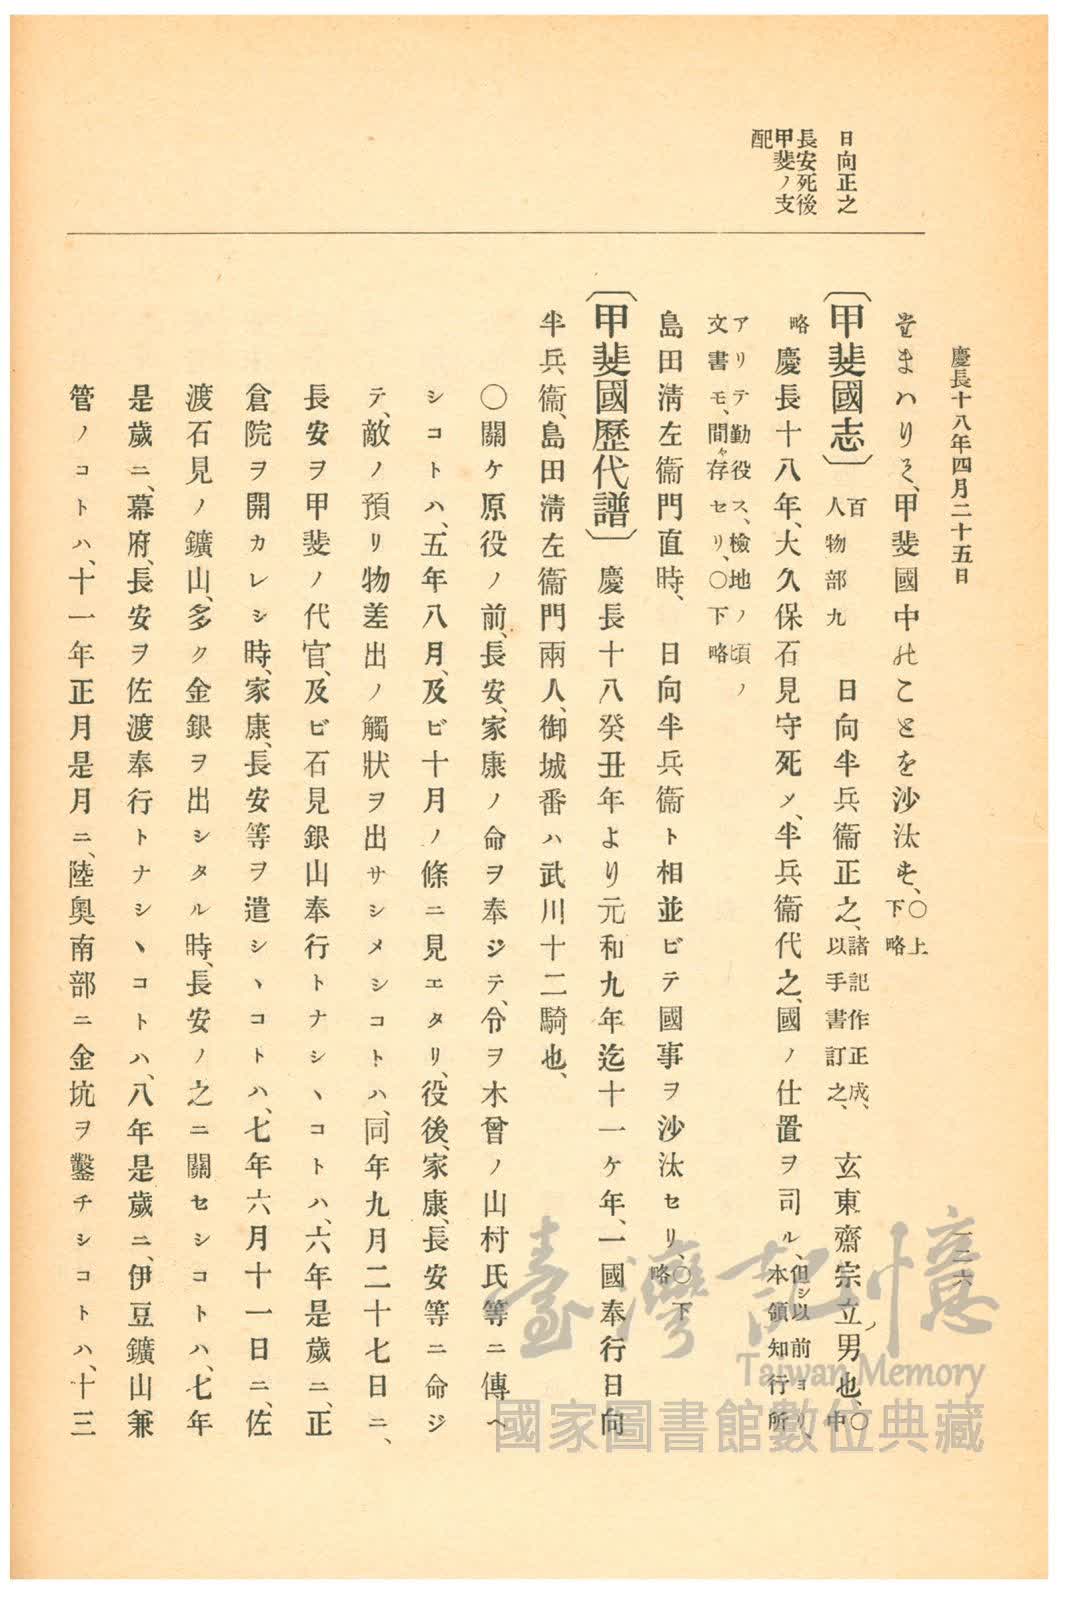 慶長十八年四月二十五日
一二六
日向正之
長安死後
甲斐ノ支
配
まハりミ、甲斐國中のことを沙汰も、○上
下略
〔甲斐國志〕百
人物部九 日向半兵衞正之、諸記作正成、
以手書訂之、 玄東齋宗立ノ男也、○中
略 慶長十八年、大久保石見守死〆、半兵衞代之、國ノ仕置ヲ司ル、但シ以前ヨリ、
本領知行所
アリテ勤役ス、檢地ノ頃ノ
文書モ、間々存セリ、○下略
島田淸左衞門直時、 日向半兵衞ト相並ビテ國事ヲ沙汰セリ、○下
略
〔甲斐國歷代譜〕 慶長十八癸丑年より元和九年迄十一ケ年、一國奉行日向
半兵衞、島田淸左衞門兩人、御城番ハ武川十二騎也、
○關ケ原役ノ前、長安、家康ノ命ヲ奉ジテ、令ヲ木曾ノ山村氏等ニ傳ヘ
シコトハ、五年八月、及ビ十月ノ條ニ見エタリ、役後、家康、長安等ニ命ジ
テ、敵ノ預リ物差出ノ觸狀ヲ出サシメシコトハ、同年九月二十七日ニ、
長安ヲ甲斐ノ代官、及ビ石見銀山奉行トナシヽコトハ、六年是歲ニ、正
倉院ヲ開カレシ時、家康、長安等ヲ遣シヽコトハ、七年六月十一日ニ、佐
渡石見ノ鑛山、多ク金銀ヲ出シタル時、長安ノ之ニ關セシコトハ、七年
是歲ニ、幕府、長安ヲ佐渡奉行トナシヽコトハ、八年是歲ニ、伊豆鑛山兼
管ノコトハ、十一年正月是月ニ、陸奧南部ニ金坑ヲ鑿チシコトハ、十三
臺灣記憶
Taiwan Memory
國家圖書館數位典藏